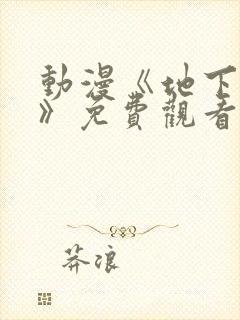 動漫《地下
》免費觀看
莽浪